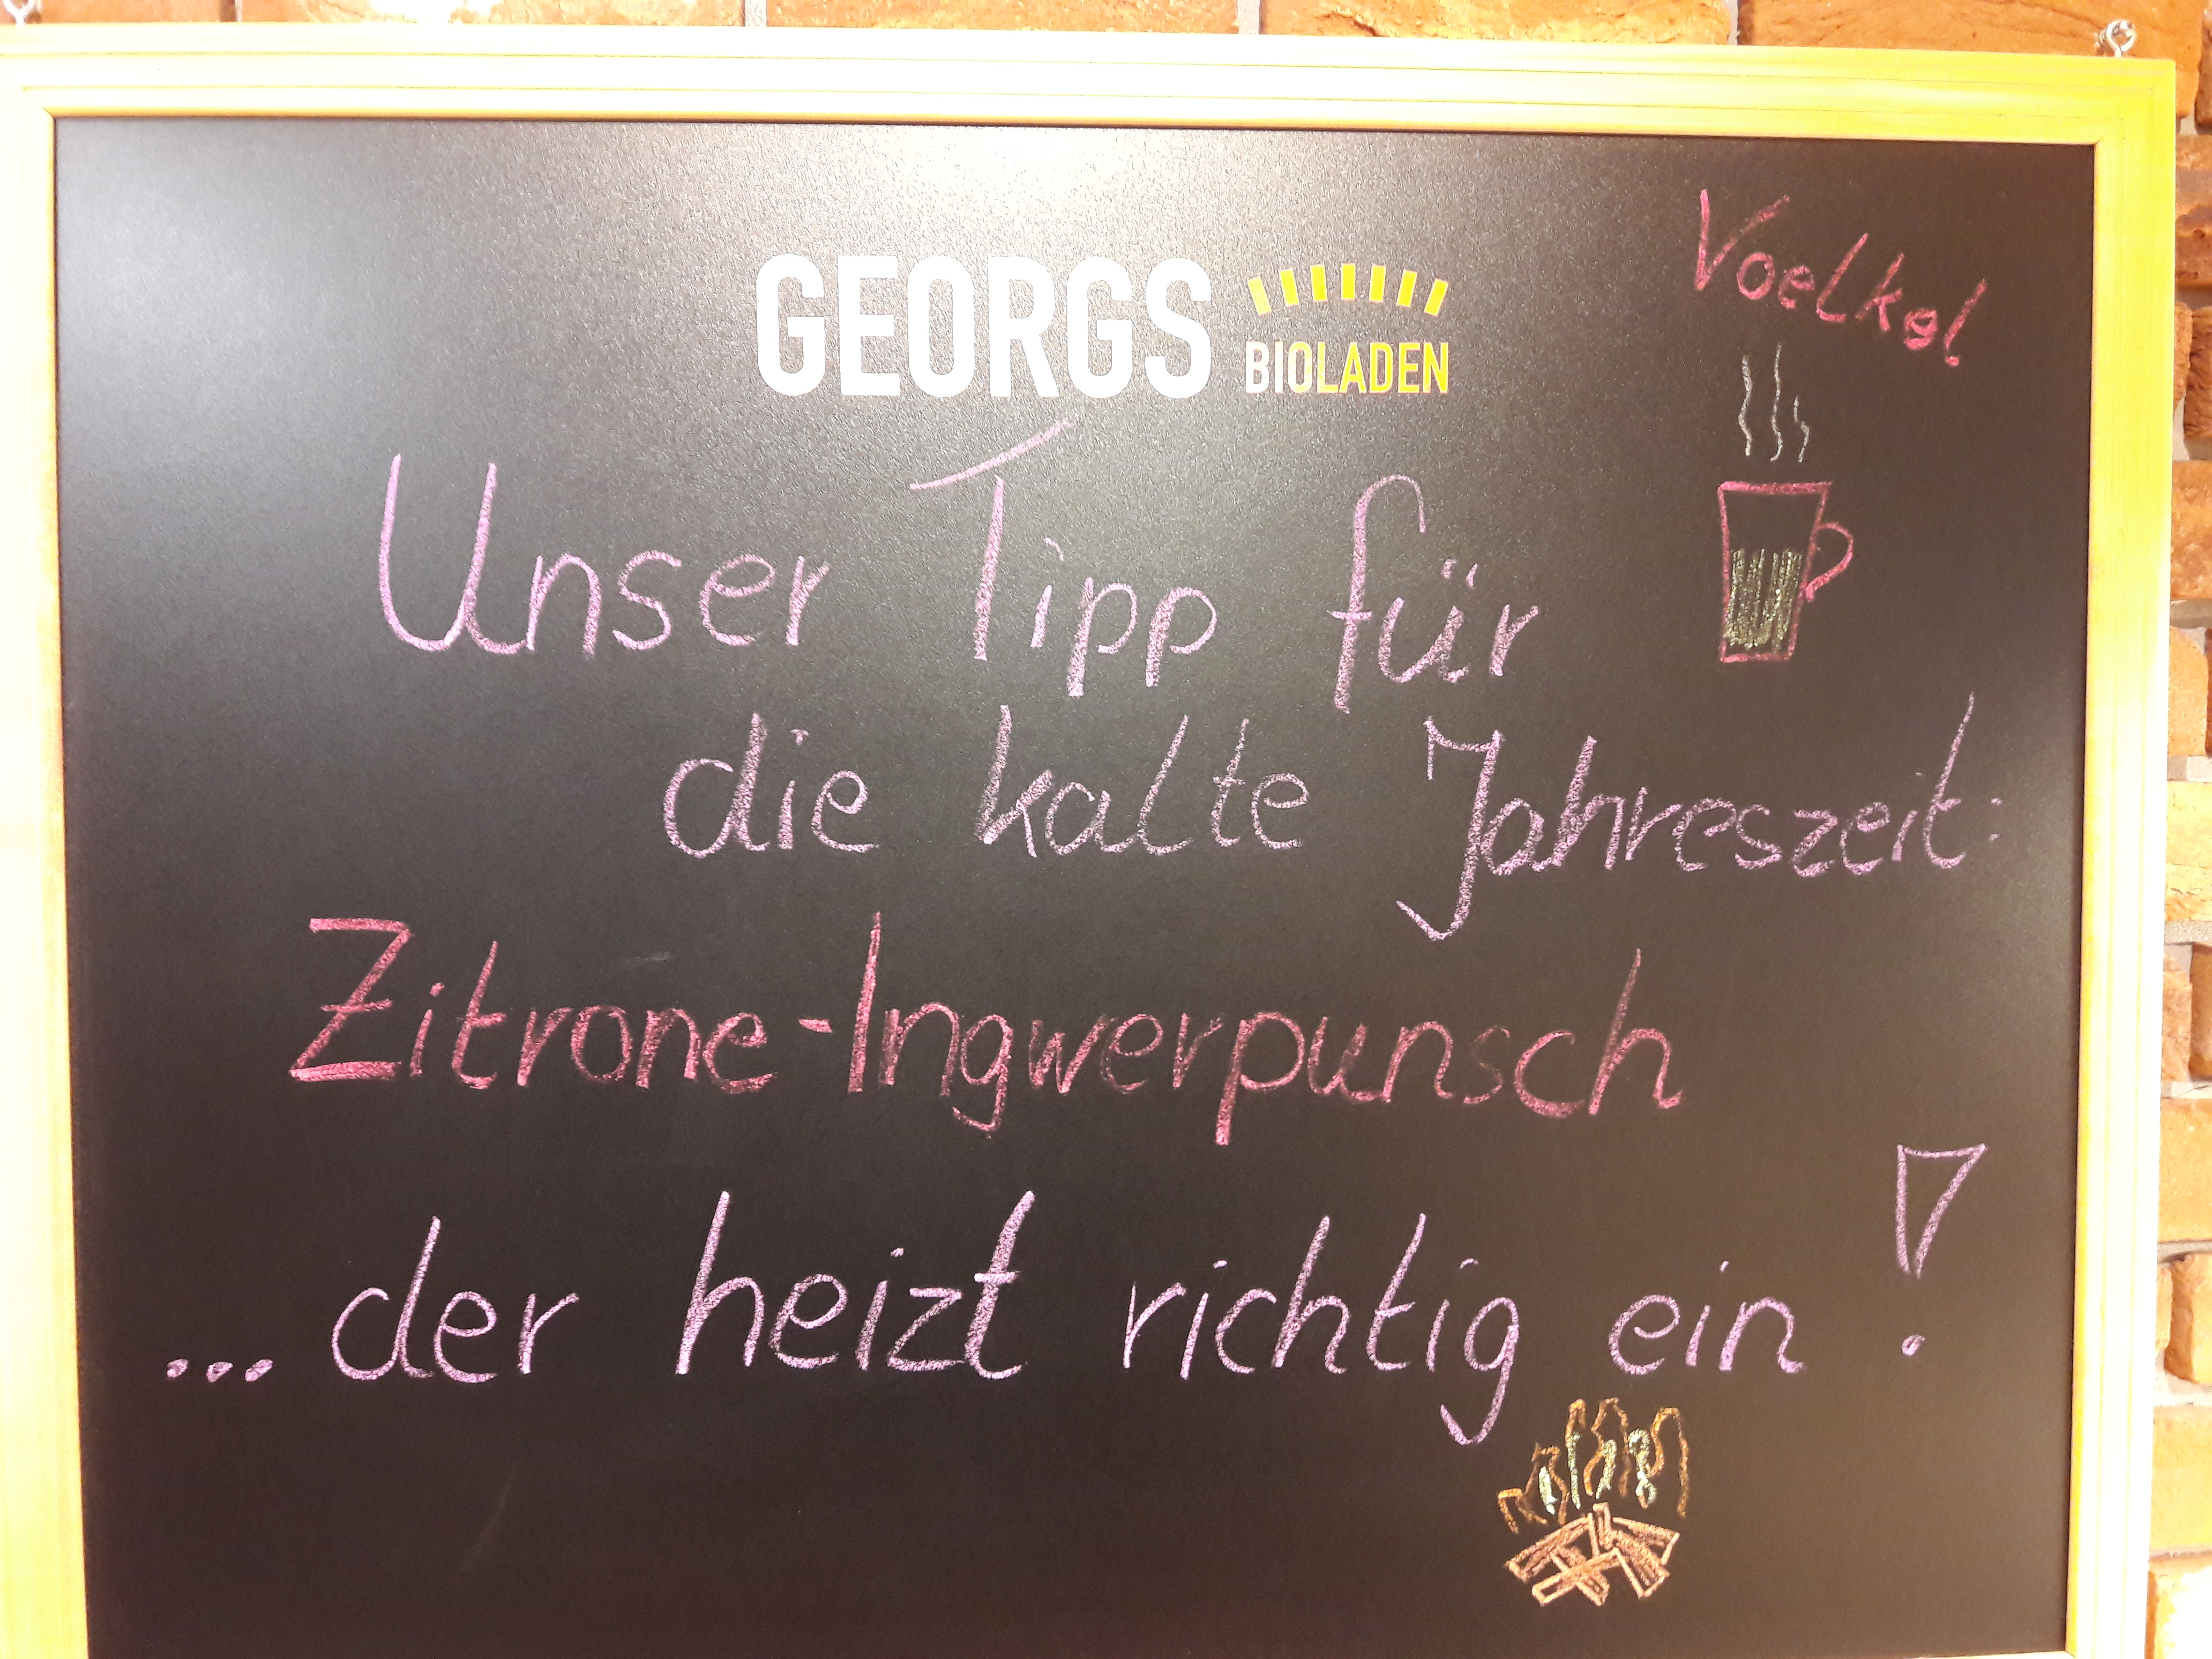 Voelkel
GEORGS
BIOLADEN
Unser Tipp für
die kalte Jahreszeit:
Zitrone-Ingwerpunsch
... der heizt richtig ein !